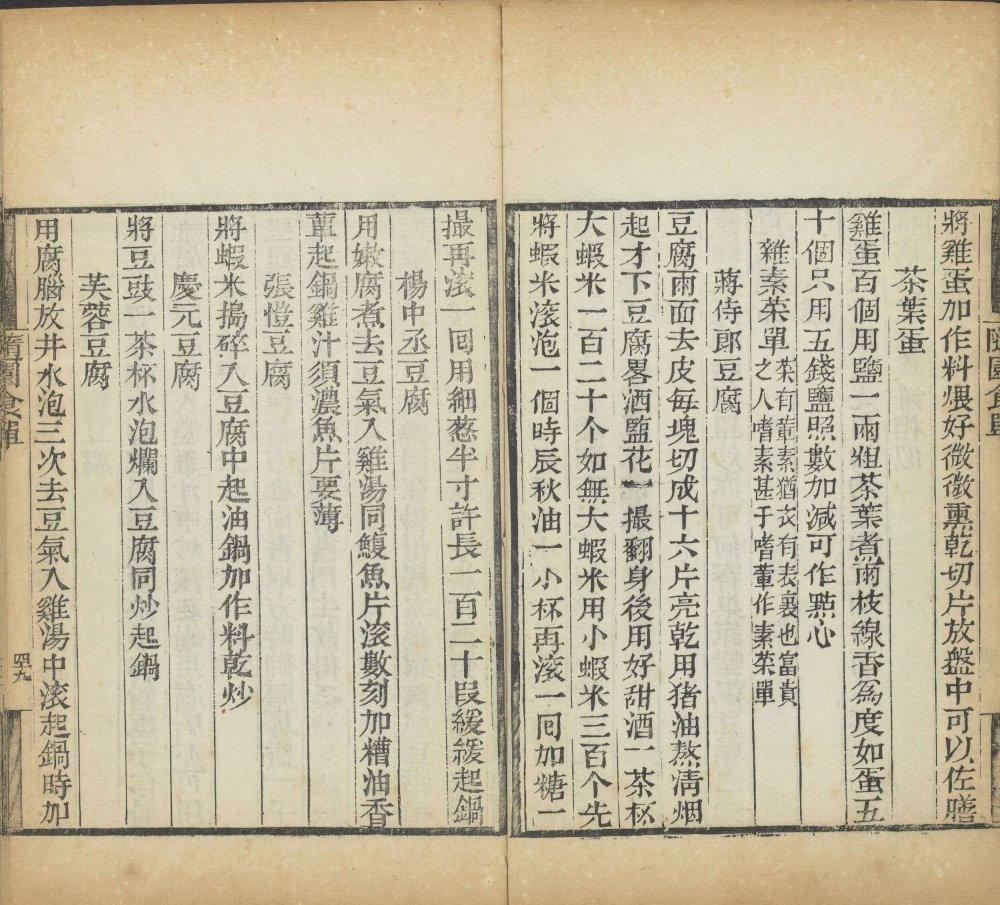 隨園食單
將雞蛋加作料煨好微微熏乾切片放盤中可以佐膳
茶葉蛋
雞蛋百個用鹽一兩粗茶葉煮兩枝線香為度如蛋五
十個只用五錢鹽照數加減可作點心
雜素菜單
菜有葷素猶衣有表裏也富貴
之人嗜素甚于嗜葷作素菜單
蔣侍郎豆腐
豆腐兩面去皮每塊切成十六片亮乾用猪油熬清烟
起才下豆腐畧洒鹽花一撮翻身後用好甜酒一茶杯
大蝦米一百二十个如無大蝦米用小蝦米三百个先
將蝦米滾泡一個時辰秋油一小杯再滾一囘加糖一
撮再滾一囘用細葱半寸許長一百二十段緩緩起鍋
楊中丞豆腐
用嫩腐煮去豆氣入雞湯同鰒魚片滾數刻加糟油香
蕈起鍋雞汁須濃魚片要薄
張愷豆腐
將蝦米搗碎入豆腐中起油鍋加作料乾炒
慶元豆腐
將豆豉一茶杯水泡爛入豆腐同炒起鍋
芙蓉豆腐
用腐腦放井水泡三次去豆氣入雞湯中滾起鍋時加
隨園食單
四九